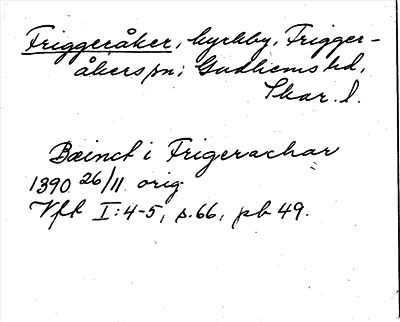 Friggeråker, kyrkby, Frigger-
åkers sn; Gudhems hd,
Skar. l.
Bæinct i Frigerachar
1390 26/11 orig.
Vft I:4-5, s.66, pb 49.